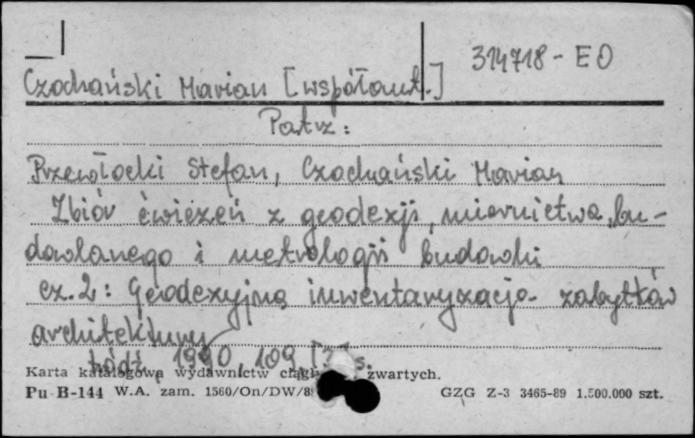 314718-EO
Czochański Marian [współaut.]
Patrz:
Przewłocki Stefan, Czochański Marian
Zbiór ćwiczeń z geodezji, miernictwa bu-
dowlanego i metrologii budowli
cz.2: Geodezyjna inwentaryzacja zabytków
architektury
Łódź, 1990, 109 s.
Karta katalogowa wydawnictw zwartych.
Pu B-144 W.A. zam. 1560/On/DW/8 GZG Z-3 3465-89 1.500.000 szt.